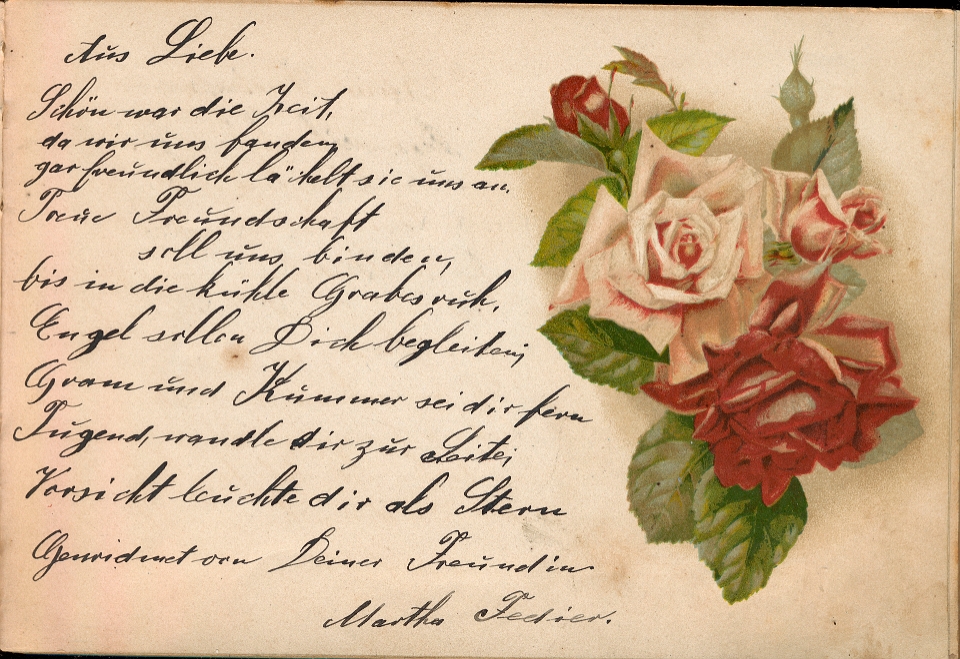 Aus Liebe.
Schön war die Zeit,
da wir uns fanden
gar freundlich lächelt sie uns an,
Treue Freundschaft
soll uns binden,
bis in die kühle Grabesruh,
Engel sollen Dich begleiten,
Gram und Kummer sei dir fern
Tugend, wandle dir zur Seite,
Vorsicht leuchte dir als Stern
Gewidmet von Deiner Freundin
Martha